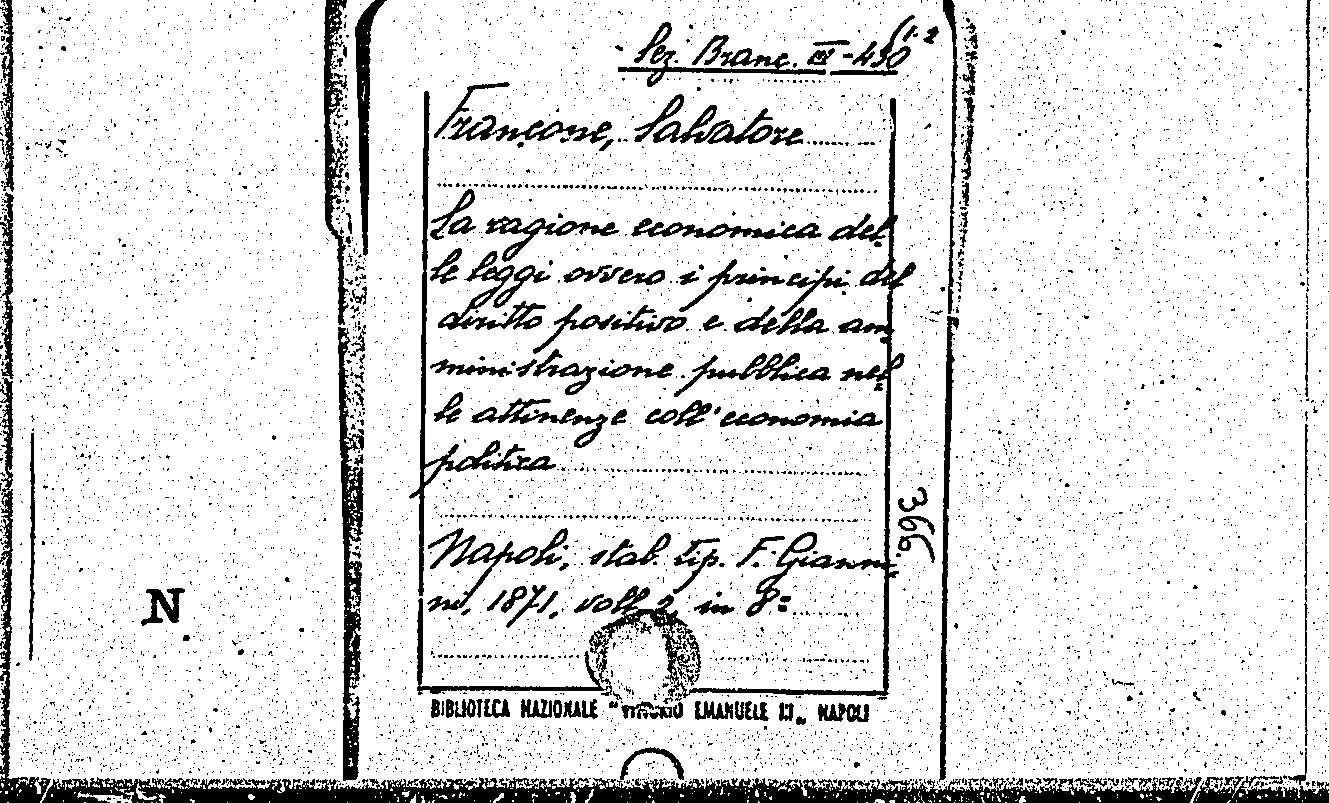 Sez. Branc. III-450 (1-2
Francone, Salvatore
La ragione economica del-
le leggi ovvero i principi del
diritto positivo e della am-
ministrazione pubblica nel-
le attinenze coll'economia
politica
Napoli, stab. tip. F. Gianni-
ni, 1871, voll. 2, in 8º
366
N
BIBLIOTECA NAZIONALE "VITTORIO EMANUELE III" NAPOLI